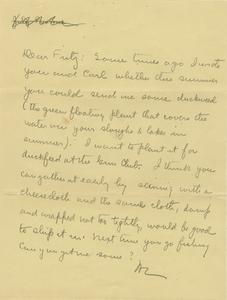 Dear Fritz: Some time ago I wrote
you and Carl whether this summer
you could send me some duckweed
(the green floating plant that covers the
water in your sloughs & lakes in
summer). I want to plant it for
duckfeed at the Club. I think you
can gather it easily by seining with a
cheesecloth and the same cloth, damp
and wrapped not too tightly, would be good
to ship it in. Next time you go fishing
can you get me some?